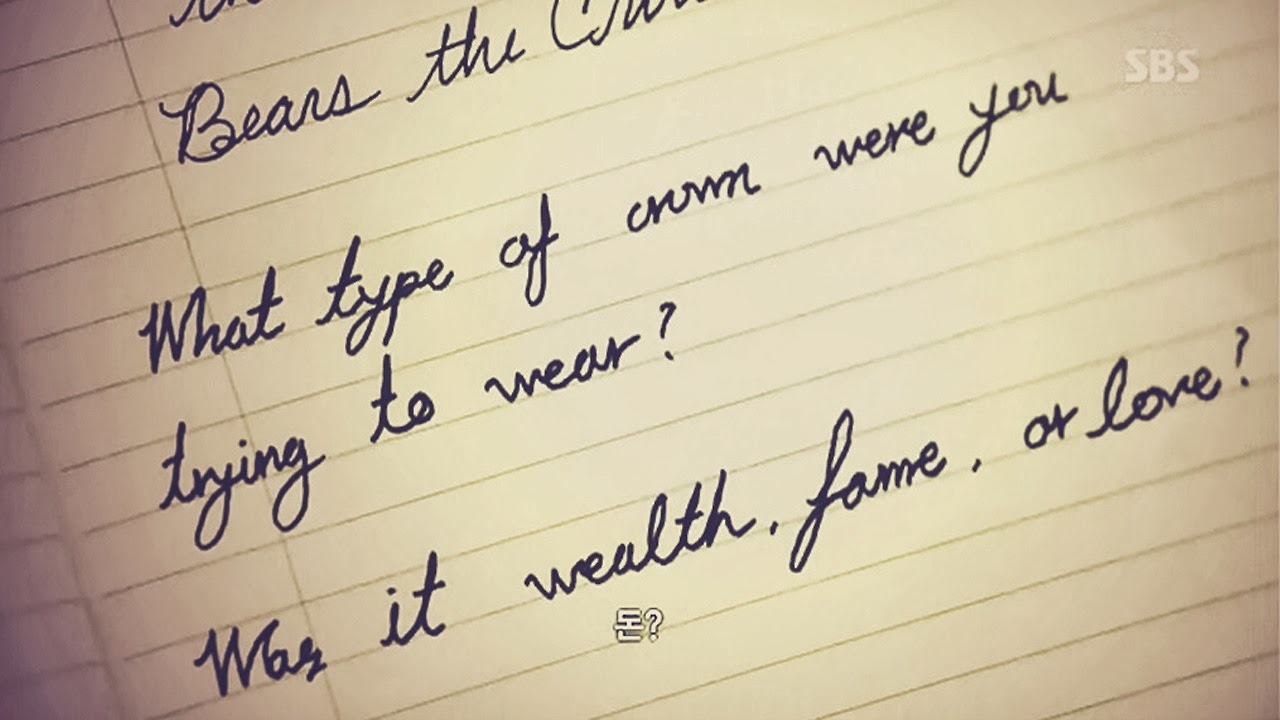 Bears the
SBS
What type of crown were you
trying to wear?
Was it wealth, fame, or love?
돈?